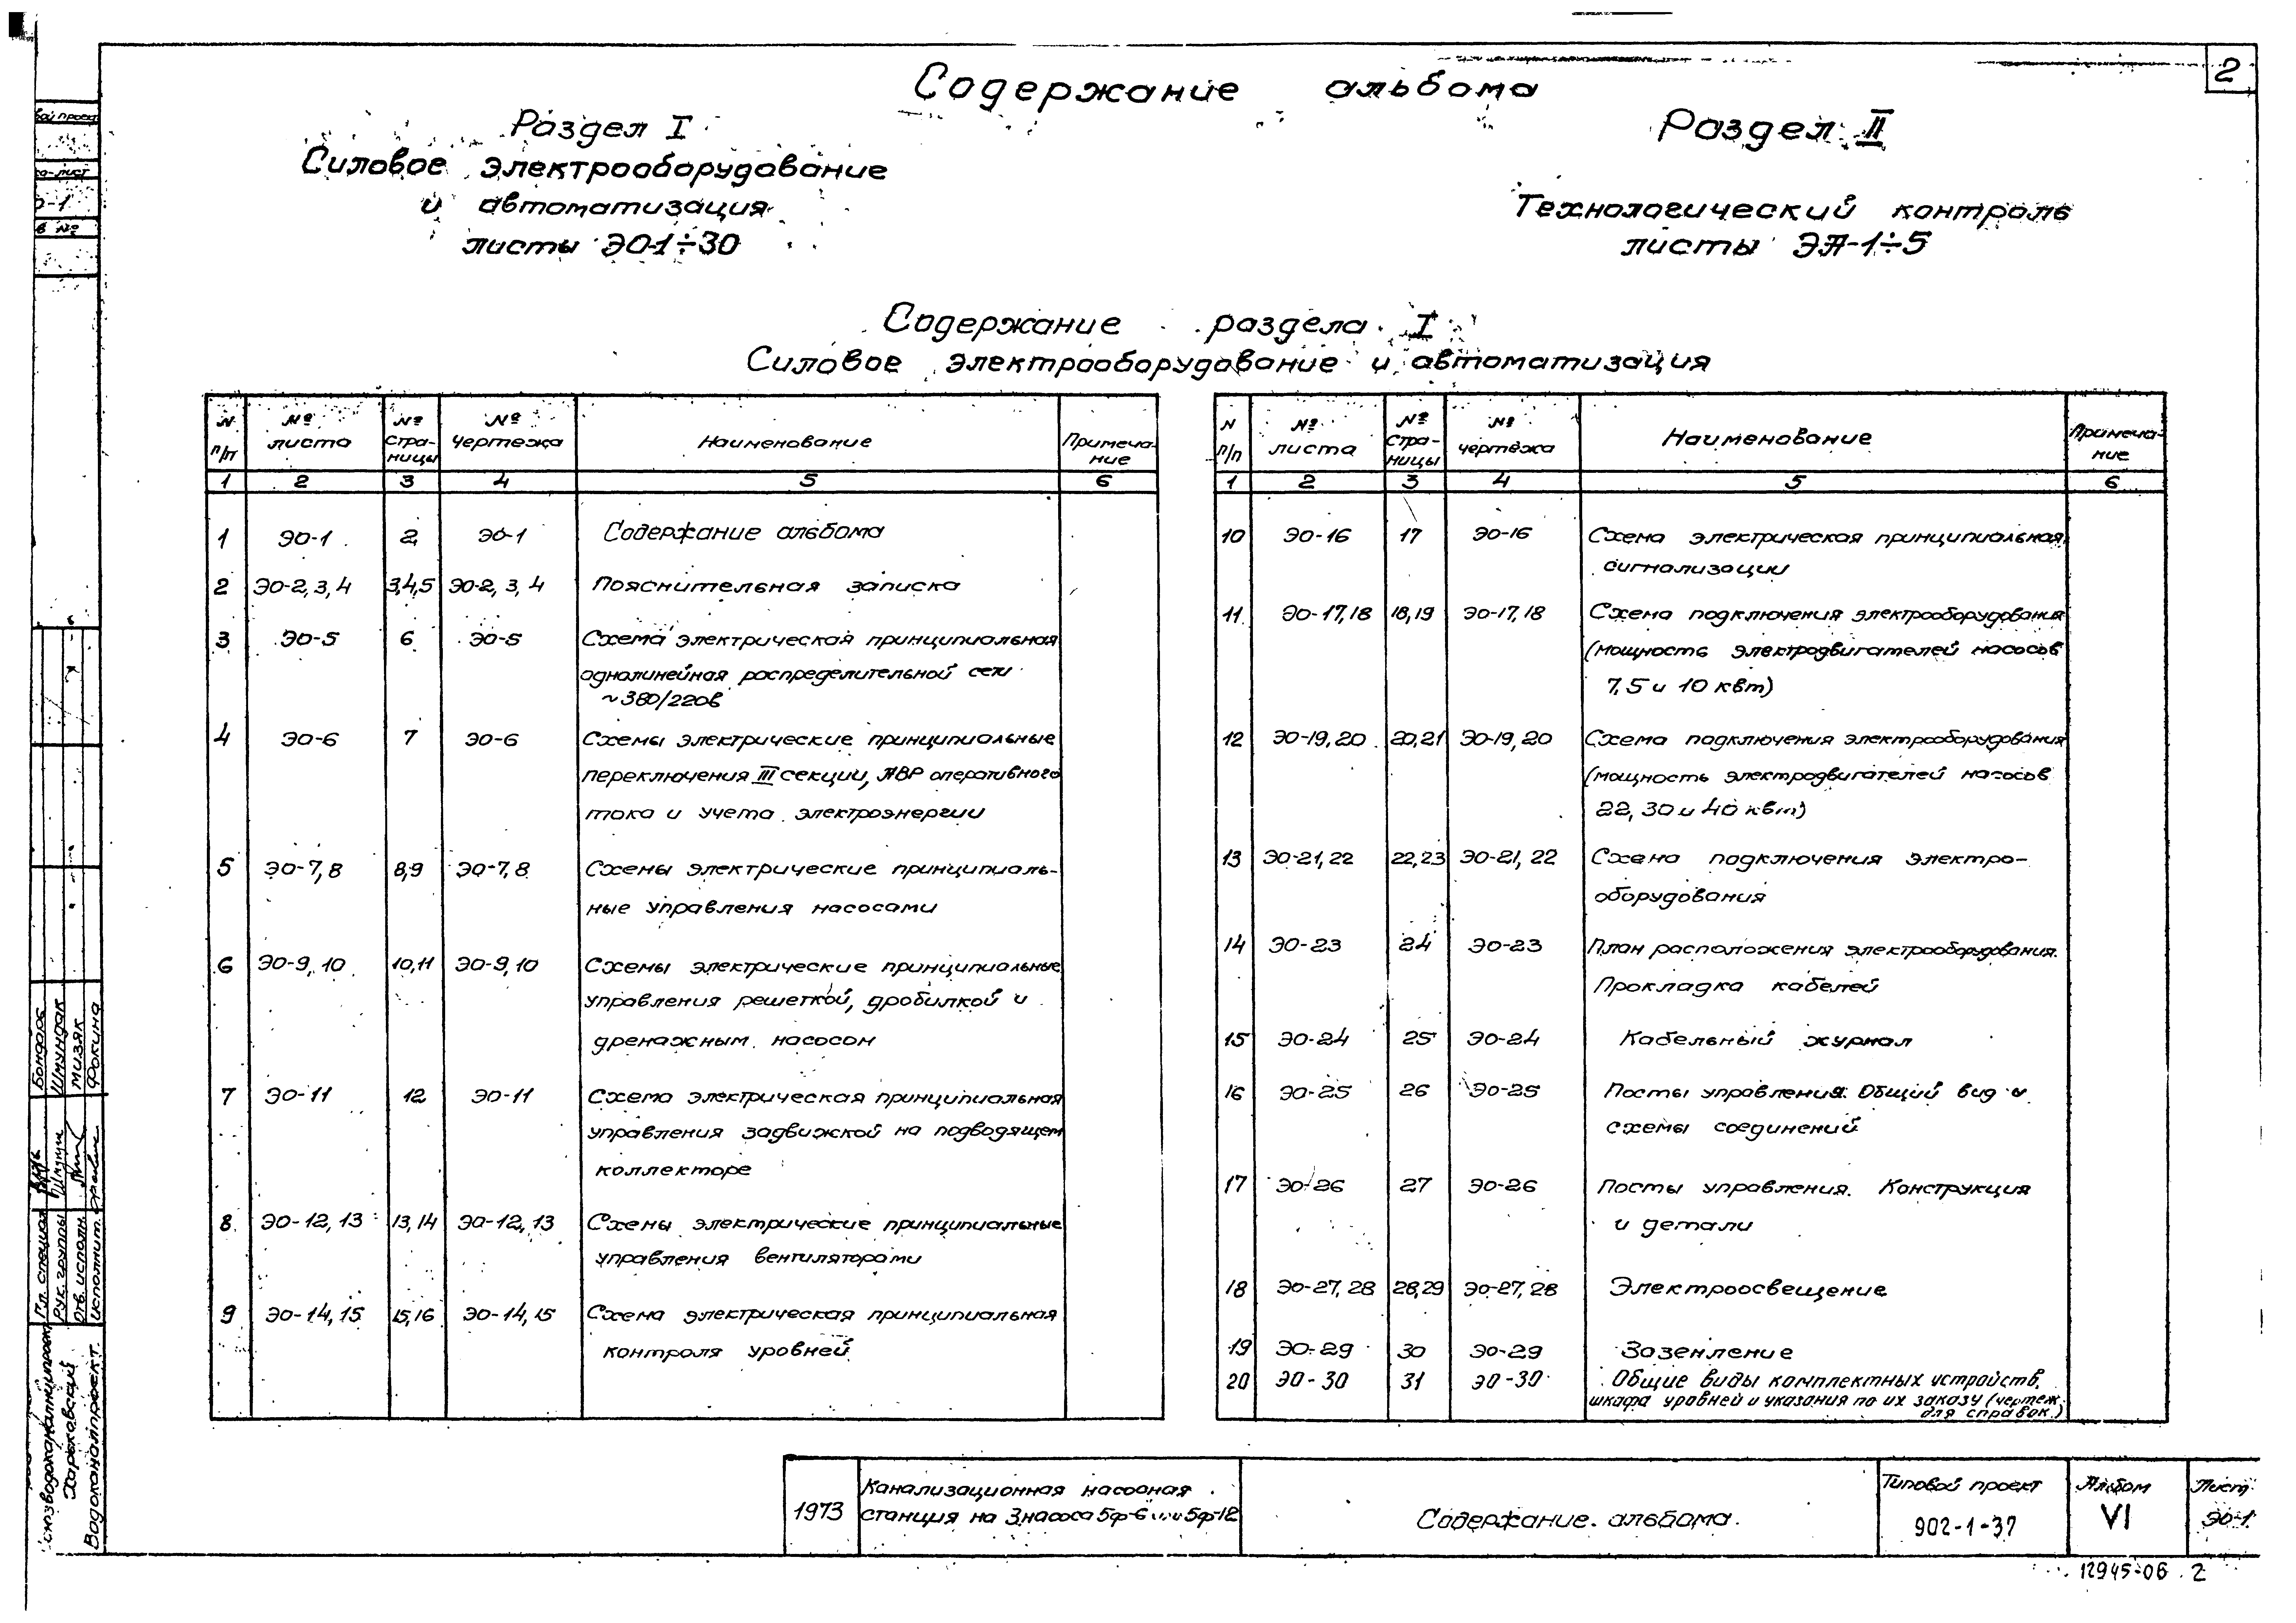 2
Содержание альбома
Раздел I
Силовое электрооборудование
и автоматизация
листы ЭО-1÷30
Раздел II
Технологический контроль
листы ЭА-1÷5
Содержание раздела I
Силовое электрооборудование и автоматизация
N п/п | № листа | № стра-ницы | № чертежа | Наименование | Примеча-ние
1 | 2 | 3 | 4 | 5 | 6
1 | ЭО-1 | 2 | ЭО-1 | Содержание альбома
2 | ЭО-2, 3, 4 | 3,4,5 | ЭО-2, 3, 4 | Пояснительная записка
3 | ЭО-5 | 6 | ЭО-5 | Схема электрическая принципиальная
однолинейная распределительной сети
~380/220в
4 | ЭО-6 | 7 | ЭО-6 | Схемы электрические принципиальные
переключения III секции, АВР оперативного
тока и учета электроэнергии
5 | ЭО-7, 8 | 8,9 | ЭО-7, 8 | Схемы электрические принципиаль-
ные управления насосами
6 | ЭО-9, 10 | 10,11 | ЭО-9, 10 | Схемы электрические принципиальные
управления решеткой, дробилкой и
дренажным насосом
7 | ЭО-11 | 12 | ЭО-11 | Схема электрическая принципиальная
управления задвижкой на подводящем
коллекторе
8 | ЭО-12, 13 | 13, 14 | ЭО-12, 13 | Схемы электрические принципиальные
управления вентиляторами
9 | ЭО-14, 15 | 15, 16 | ЭО-14, 15 | Схема электрическая принципиальная
контроля уровней
N п/п | № листа | № стра-ницы | № чертежа | Наименование | Примеча-ние
1 | 2 | 3 | 4 | 5 | 6
10 | ЭО-16 | 17 | ЭО-16 | Схема электрическая принципиальная
сигнализации
11 | ЭО-17, 18 | 18,19 | ЭО-17, 18 | Схема подключения электрооборудования
(мощность электродвигателей насосов
7,5 и 10 квт)
12 | ЭО-19, 20 | 20,21 | ЭО-19, 20 | Схема подключения электрооборудования
(мощность электродвигателей насосов
22, 30 и 40 квт)
13 | ЭО-21, 22 | 22,23 | ЭО-21, 22 | Схема подключения электро-
оборудования
14 | ЭО-23 | 24 | ЭО-23 | План расположения электрооборудования.
Прокладка кабелей
15 | ЭО-24 | 25 | ЭО-24 | Кабельный журнал
16 | ЭО-25 | 26 | ЭО-25 | Посты управления. Общий вид и
схемы соединений
17 | ЭО-26 | 27 | ЭО-26 | Посты управления. Конструкция
и детали
18 | ЭО-27, 28 | 28,29 | ЭО-27, 28 | Электроосвещение
19 | ЭО-29 | 30 | ЭО-29 | Заземление
20 | ЭО-30 | 31 | ЭО-30 | Общие виды комплектных устройств,
шкафа уровней и указания по их заказу (чертеж
для справок.)
1973
Канализационная насосная
станция на 3 насоса 5ф-6 или 5ф-12
Содержание альбома.
Типовой проект
902-1-37
Альбом
VI
Лист
ЭО-1
12945-06 2
Гл. специал. Бондарь
Рук. группы Шмундак
Отв. исполн. Мизяк
исполнит. Фокина
Харьковский
Водоканалпроект.